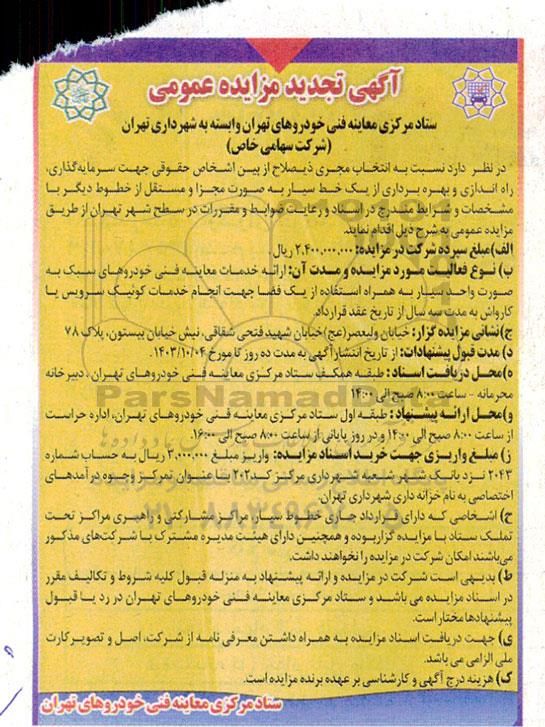 آگهی تجدید مزایده عمومی
ستاد مرکزی معاینه فنی خودروهای تهران وابسته به شهرداری تهران
(شرکت سهامی خاص)
در نظر دارد نسبت به انتخاب مجری ذیصلاح از بین اشخاص حقوقی جهت سرمایه‌گذاری،
راه اندازی و بهره برداری از یک خط سیار به صورت مجزا و مستقل از خطوط دیگر با
مشخصات و شرایط مندرج در اسناد و رعایت ضوابط و مقررات در سطح شهر تهران از طریق
مزایده عمومی به شرح ذیل اقدام نماید.
الف) مبلغ سپرده شرکت در مزایده: ۲.۴۰۰.۰۰۰.۰۰۰ ریال.
ب) نوع فعالیت مورد مزایده و مدت آن: ارائه خدمات معاینه فنی خودروهای سبک به
صورت واحد سیار به همراه استفاده از یک فضا جهت انجام خدمات کوئیک سرویس یا
کارواش به مدت سه سال از تاریخ عقد قرارداد.
ج) نشانی مزایده گزار: خیابان ولیعصر(عج) خیابان شهید فتحی شقاقی، نبش خیابان بیستون، پلاک ۷۸
د) مدت قبول پیشنهادات: از تاریخ انتشار آگهی به مدت ده روز تا مورخ ۱۴۰۳/۱۰/۰۴.
ه) محل دریافت اسناد: طبقه همکف ستاد مرکزی معاینه فنی خودروهای تهران، دبیرخانه
محرمانه - ساعت ۸:۰۰ صبح الی ۱۴:۰۰
و) محل ارائه پیشنهاد: طبقه اول ستاد مرکزی معاینه فنی خودروهای تهران، اداره حراست
از ساعت ۸:۰۰ صبح الی ۱۴:۰۰ و در روز پایانی از ساعت ۸:۰۰ صبح الی ۱۶:۰۰.
ز) مبلغ واریزی جهت خرید اسناد مزایده: واریز مبلغ ۲.۰۰۰.۰۰۰ ریال به حساب شماره
۲۰۴۳ نزد بانک شهر شعبه شهرداری مرکز کد ۲۰۲ با عنوان تمرکز وجوه درآمدهای
اختصاصی به نام خزانه داری شهرداری تهران.
ح) اشخاصی که دارای قرارداد جاری خطوط سیار، مراکز مشارکتی و راهبری مراکز تحت
تملک ستاد با مزایده گزار بوده و همچنین دارای هیئت مدیره مشترک با شرکت‌های مذکور
می‌باشند امکان شرکت در مزایده را نخواهند داشت.
ط) بدیهی است شرکت در مزایده و ارائه پیشنهاد به منزله قبول کلیه شروط و تکالیف مقرر
در اسناد مزایده می باشد و ستاد مرکزی معاینه فنی خودروهای تهران در رد یا قبول
پیشنهادها مختار است.
ی) جهت دریافت اسناد مزایده به همراه داشتن معرفی نامه از شرکت، اصل و تصویر کارت
ملی الزامی می باشد.
ک) هزینه درج آگهی و کارشناسی بر عهده برنده مزایده است.
ستاد مرکزی معاینه فنی خودروهای تهران
ParsNamadData